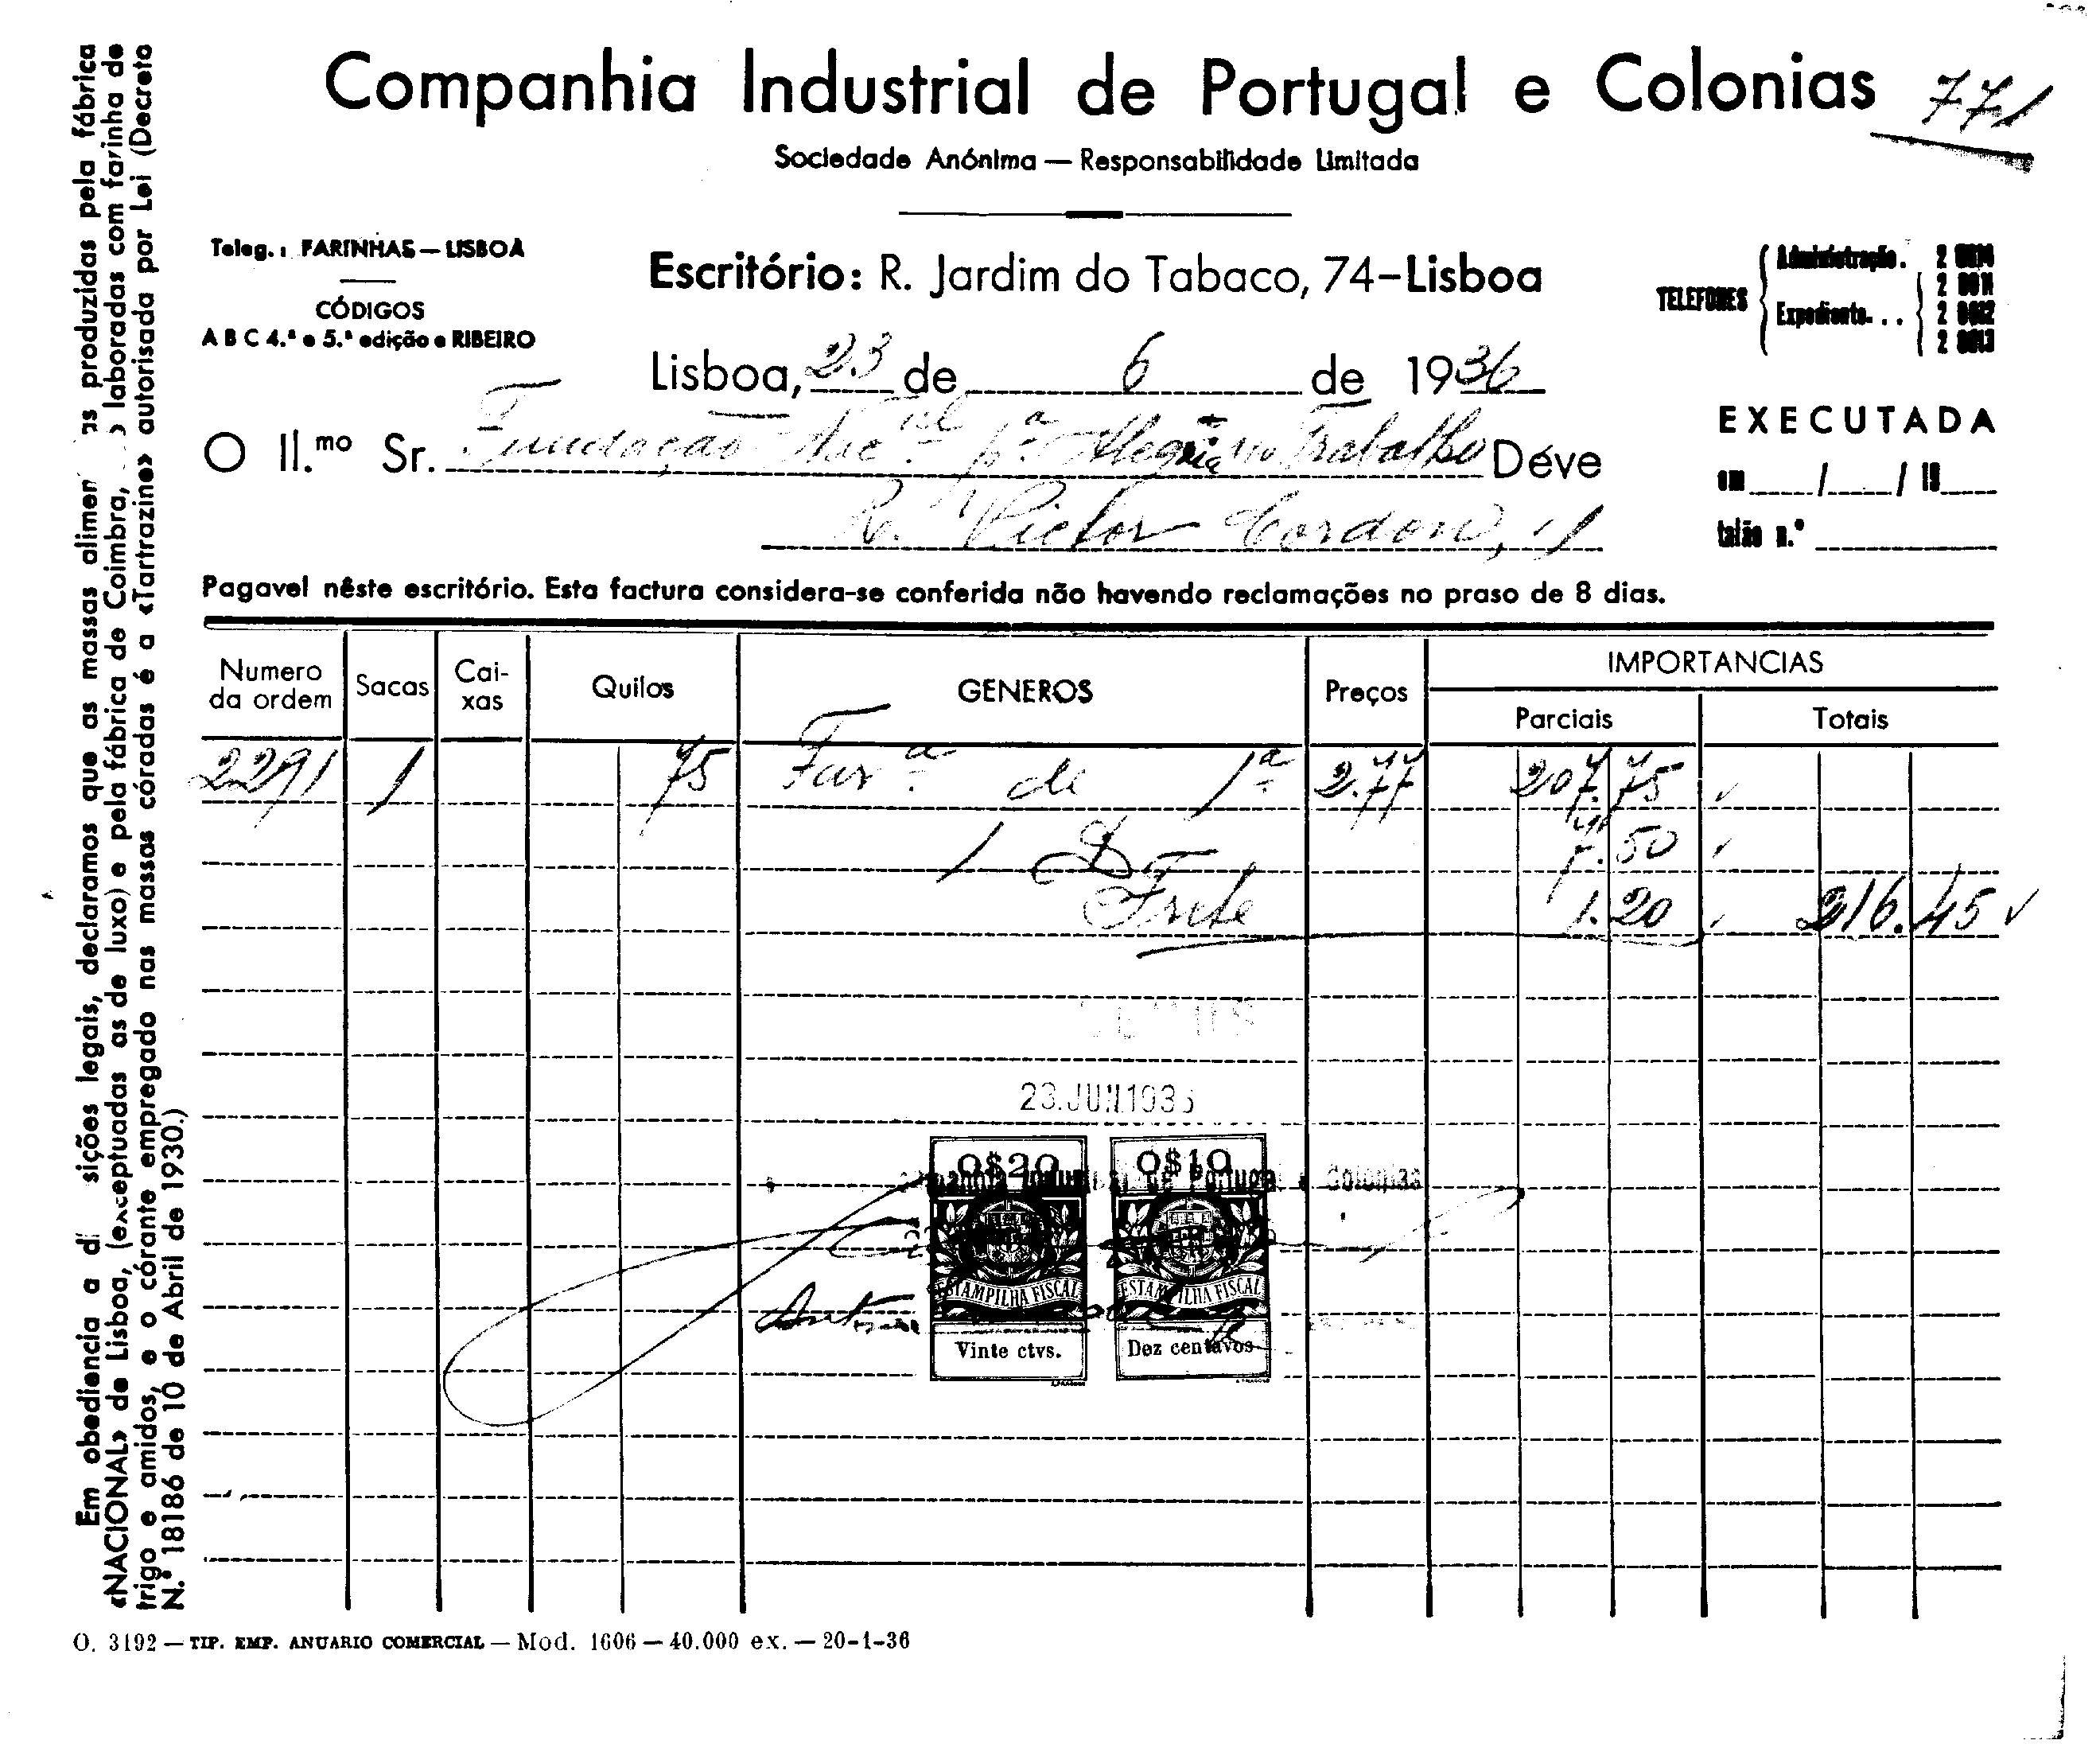 Companhia Industrial de Portugal e Colonias
771
Sociedade Anónima — Responsabilidade Limitada
Teleg.: FARINHAS — LISBOA
CÓDIGOS
A B C 4.ª e 5.ª edição e RIBEIRO
Escritório: R. Jardim do Tabaco, 74-Lisboa
TELEFONES
Administração. 2
Expediente. . . 2 2 2
Lisboa, 23 de 6 de 1936
O Il.mo Sr. Fundação Nac.al p.a Alegria no Trabalho Deve
R. Victor Cordon, 1
EXECUTADA
em / / 19
talão n.º
Pagavel nêste escritório. Esta factura considera-se conferida não havendo reclamações no praso de 8 dias.
Numero da ordem Sacas Cai-xas Quilos GENEROS Preços IMPORTANCIAS
Parciais Totais
2291 1 75 Far.a de 1ª 2.77 207.75
1 7.50
Frete 1.20 216.45
23.JUN.1936
O$20 O$10
Companhia Industrial de Portugal e Colonias
ESTAMPILHA FISCAL ESTAMPILHA FISCAL
Vinte ctvs. Dez centavos
Em obediencia a di sições legais, declaramos que as massas alimen as produzidas pela fábrica
«NACIONAL» de Lisboa, (exceptuadas as de luxo) e pela fábrica de Coimbra, laboradas com farinha de
trigo e amidos, e o córante empregado nas massas córadas é a «Tartrazine» autorisada por Lei (Decreto
N.º 18186 de 10 de Abril de 1930.)
O. 3192 — TIP. EMP. ANUARIO COMERCIAL — Mod. 1606 — 40.000 ex. — 20-1-36